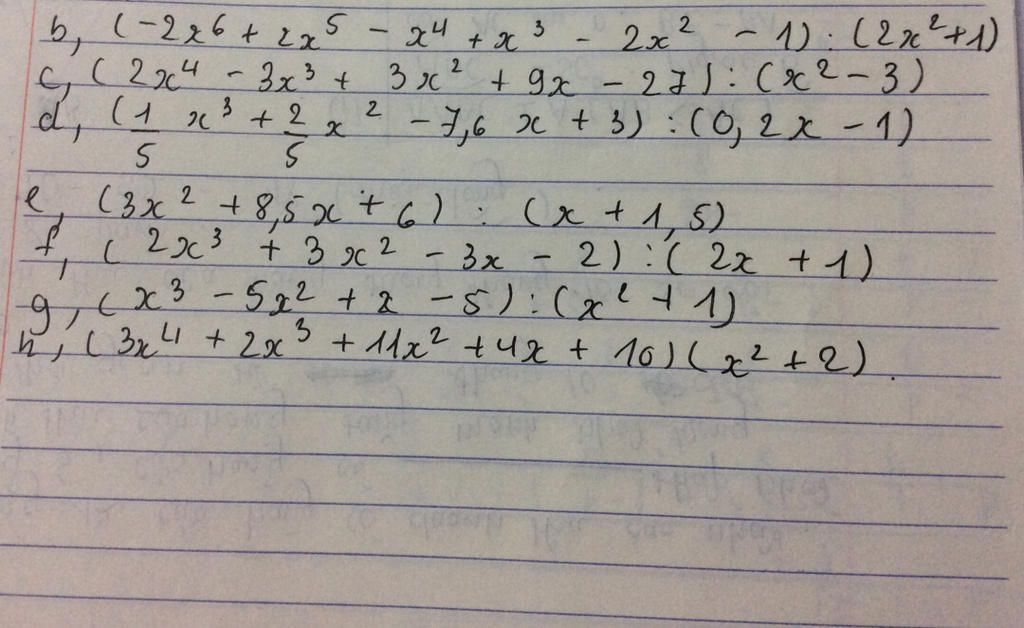 b, (-2x⁶ + 2x⁵ - x⁴ + x³ - 2x² - 1) : (2x²+1)
c, (2x⁴ - 3x³ + 3x² + 9x - 27) : (x² - 3)
d, (1/5 x³ + 2/5 x² - 7,6 x + 3) : (0,2x - 1)
e, (3x² + 8,5x + 6) : (x + 1,5)
f, (2x³ + 3x² - 3x - 2) : (2x + 1)
g, (x³ - 5x² + x - 5) : (x² + 1)
h, (3x⁴ + 2x³ + 11x² + 4x + 10) (x² + 2).